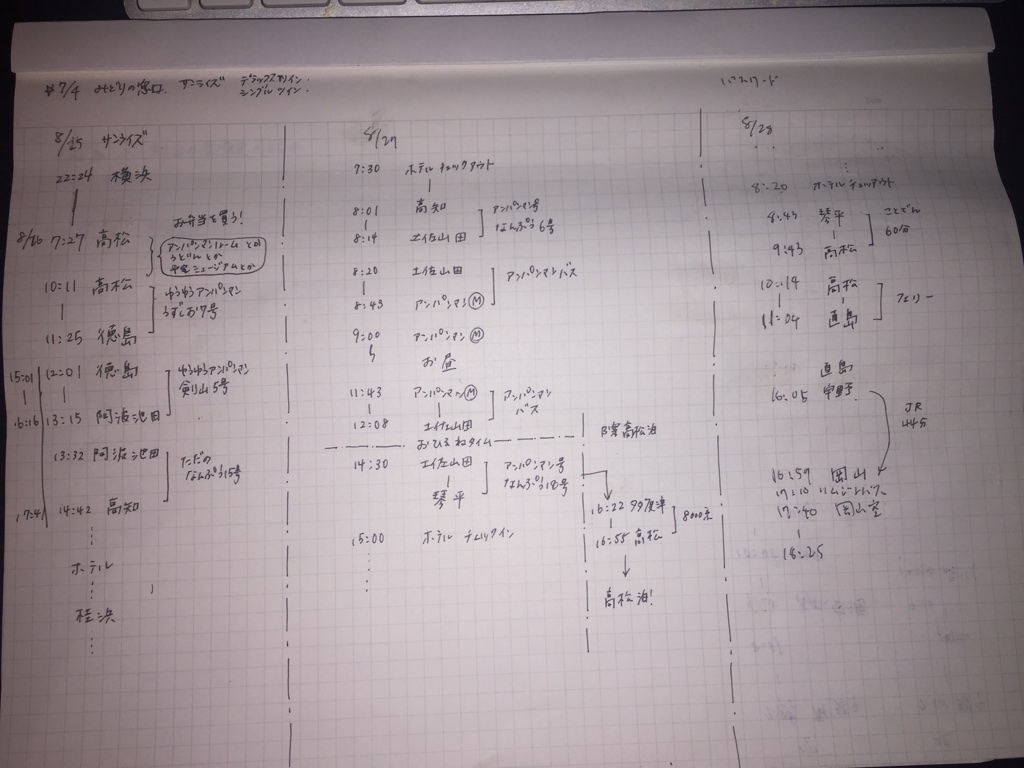 #7/4 みどりの窓口 サンライズ デラックスツイン
シングルツイン
パスワード
8/25 サンライズ
22:24 横浜
お弁当を買う!
8/26 7:27 高松
アンパンマントレーム とか
うどん とか
ミュージアムとか
10:11 高松
ゆうゆうアンパンマン
うずしお7号
11:25 徳島
15:01 12:01 徳島
ゆうゆうアンパンマン
剣山5号
16:16 13:15 阿波池田
13:32 阿波池田
ただの
なんぷう15号
17:41 14:42 高知
ホテル
桂浜
8/27
7:30 ホテルチェックアウト
8:01 高知
アンパンマン号
なんぷう6号
8:14 土佐山田
8:20 土佐山田
アンパンマンバス
8:43 アンパンマンM
9:00 アンパンマンM
お昼
11:43 アンパンマンM
アンパンマン
バス
12:08 土佐山田
おひるねタイム
14:30 土佐山田
アンパンマン号
なんぷう18号
琴平
15:00 ホテル チェックイン
B案高松泊
16:22 多度津
8000系
16:55 高松
高松泊!
8/28
8:20 ホテルチェックアウト
8:43 琴平
ことでん
60分
9:43 高松
10:14 高松
フェリー
11:04 直島
直島
16:05 宇野
JR
44分
16:59 岡山
17:10 リムジンバス
17:40 岡山空
18:25